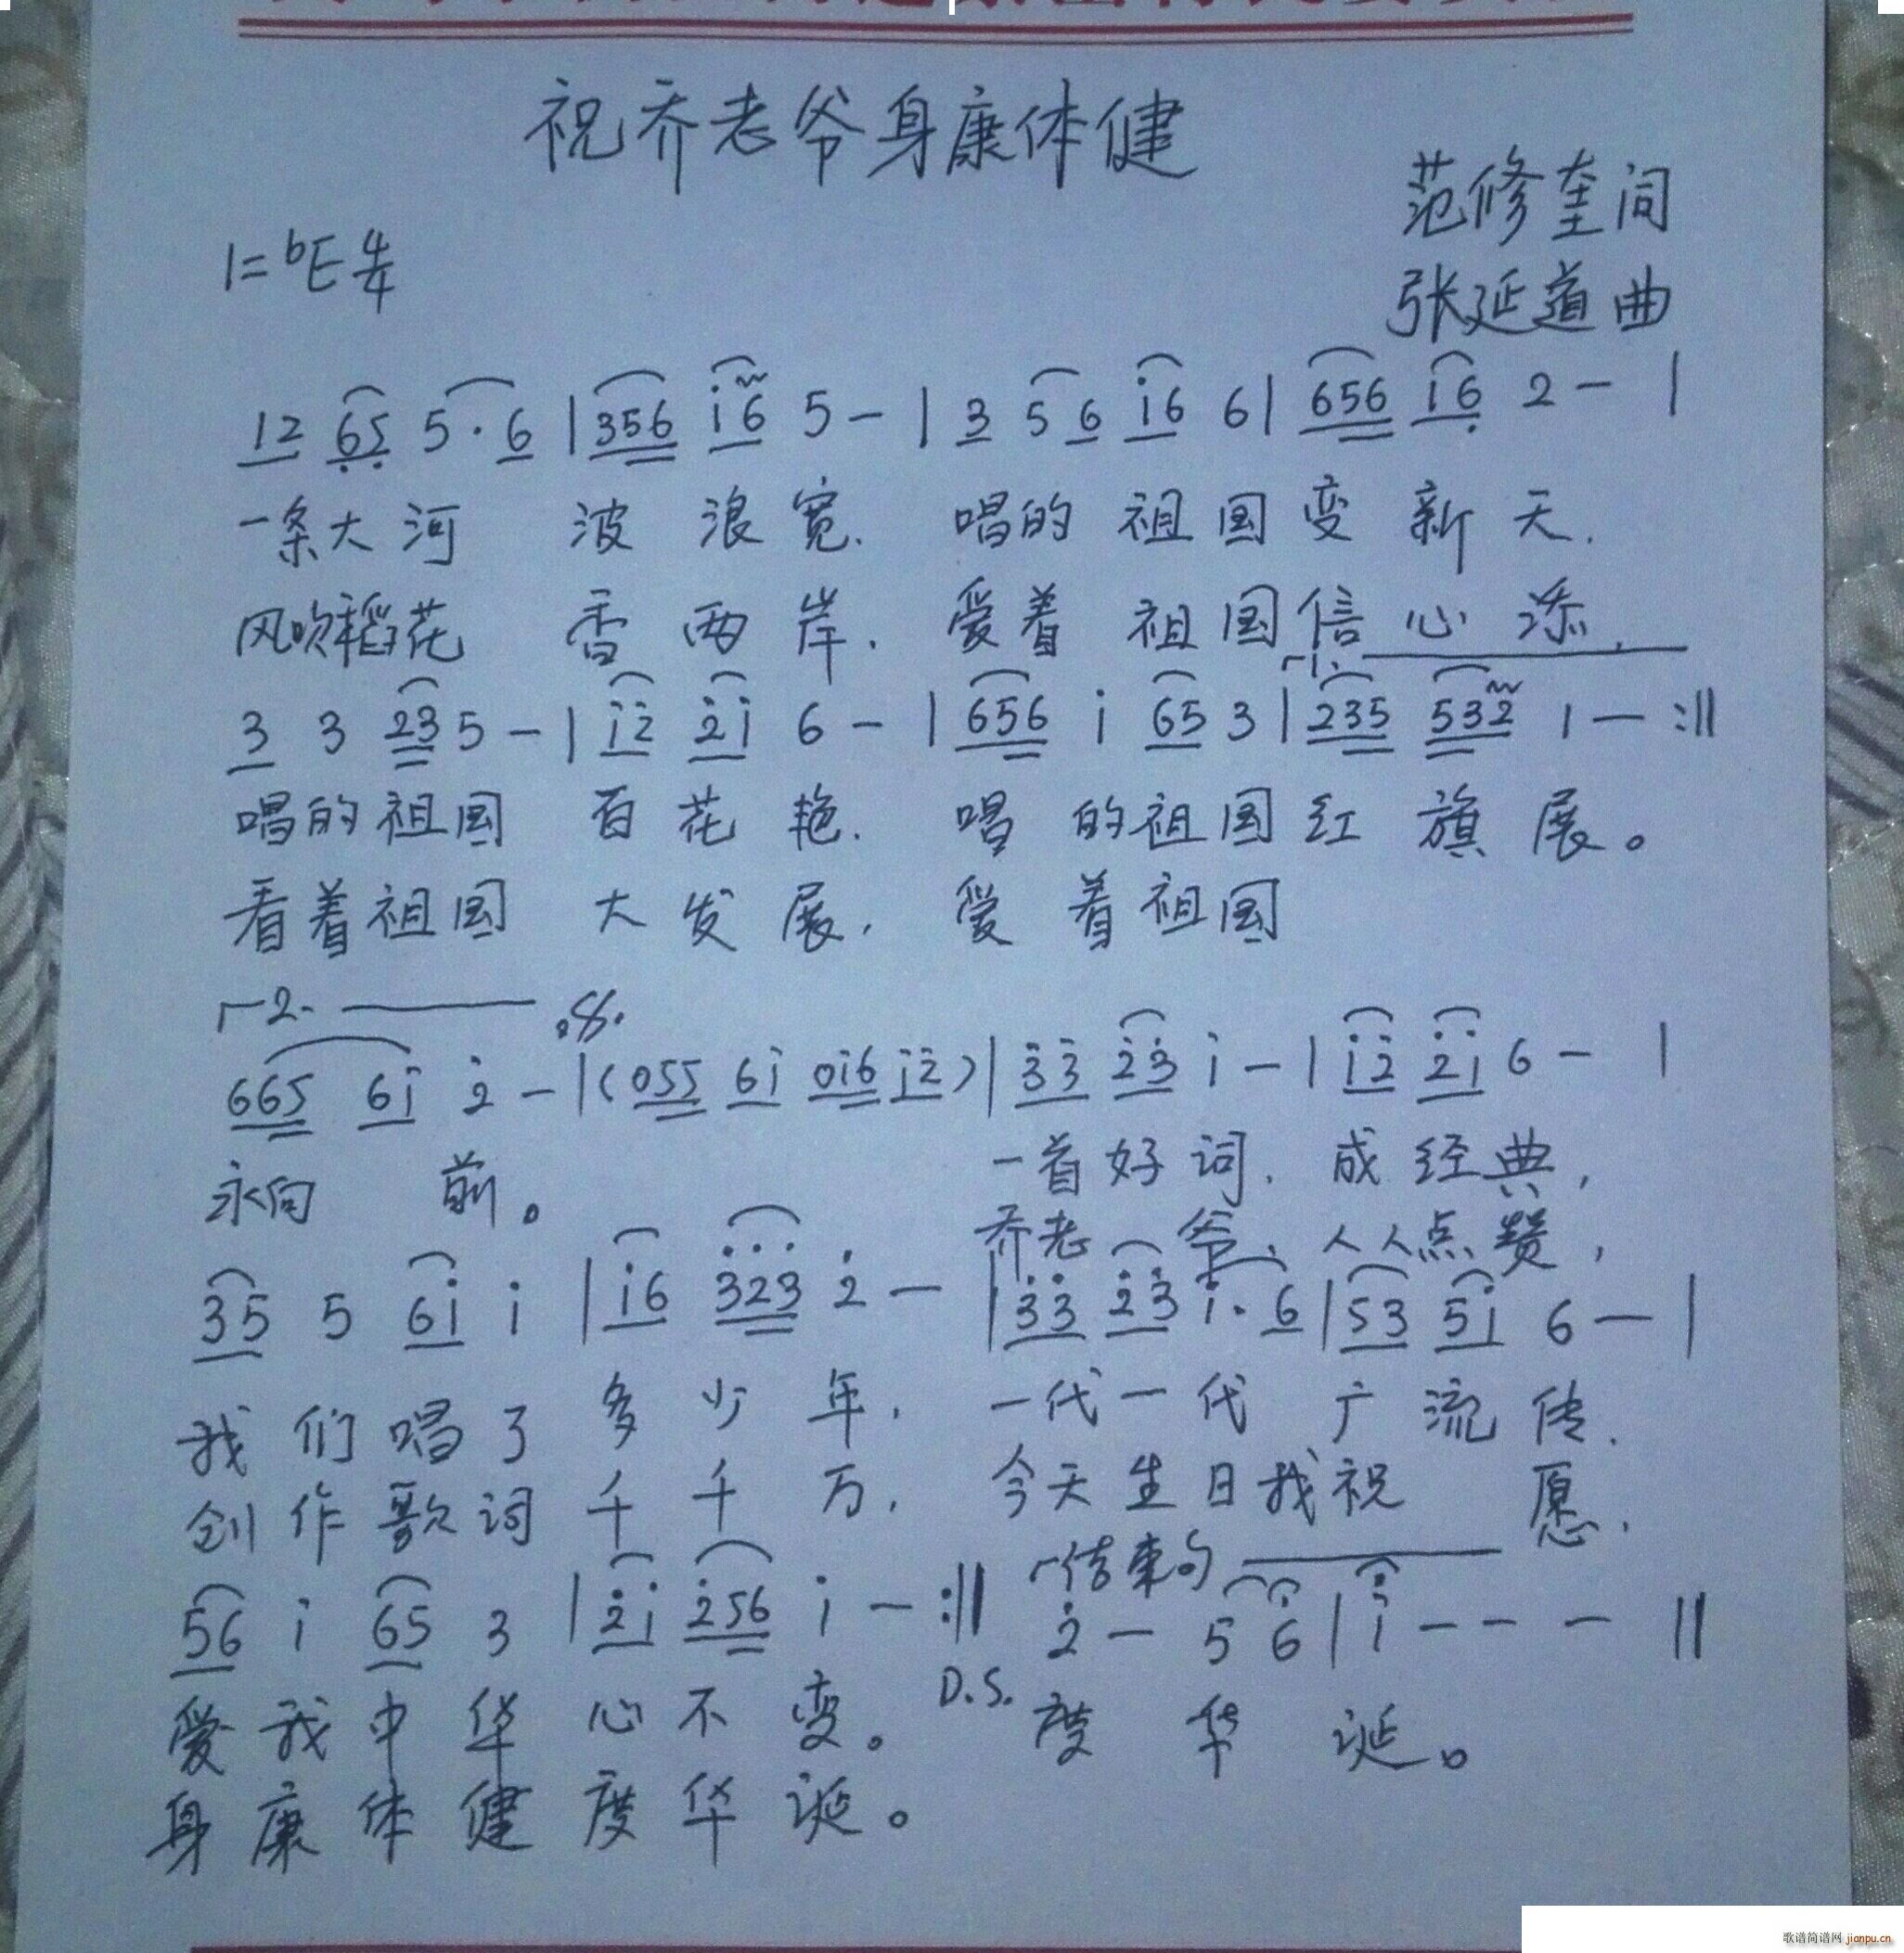 祝乔老爷身康体健
范修奎词
1=♭E 4/4
张延道曲
12 65 5·6 | 356 i6 5 — | 3 5 6 i6 6 | 656 i6 2 — |
一条大河 波浪宽. 唱的祖国变新天.
风吹稻花 香两岸. 爱着祖国信心添.
┌1.
3 3 23 5 — | i2 2i 6 — | 656 i 65 3 | 235 532 1 — :||
唱的祖国 百花艳. 唱的祖国红旗展。
看着祖国 大发展. 爱着祖国
┌2. 𝄋
665 6i 2 — | (055 6i 0i6 i2) | 33 23 i — | i2 2i 6 — |
永向 前。 一首好词. 成经典,
乔老爷、人人点赞,
35 5 6i i | i6 323 2 — | 33 23 i·6 | 53 5i 6 — |
我们唱了多少年. 一代一代广流传.
创作歌词千千万. 今天生日我祝愿.
┌结束句
56 i 65 3 | 2i 256 i — :|| 2 — 5 6 | i — — — ||
D.S.
爱我中华心不变。 度华诞。
身康体健度华诞。
歌谱简谱网 jianpu.cn